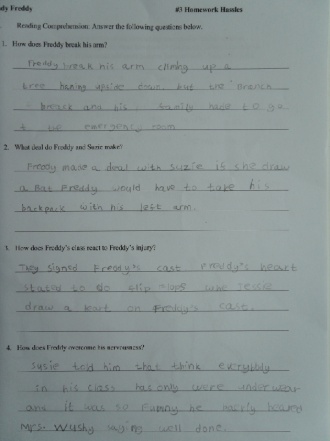 dy Freddy #3 Homework Hassles
Reading Comprehension: Answer the following questions below.
1. How does Freddy break his arm?
Freddy break his arm climhg up a
tree haning upsize down. but the branch
breack and his family have to go
t the emergency room
2. What deal do Freddy and Suzie make?
Freddy made a deal with suzie if she draw
a Bat Freddy would have to take his
backpack with his left arm.
3. How does Freddy's class react to Freddy's injury?
They signed Freddy's cast. Freddy's heart
stated to do flip-flops whe Jessie
draw a heart on Freddy's cast.
4. How does Freddy overcome his nervousness?
Susie told him that think everybody
in his class has only were underwear
and it was so Funny he barely heard
Mrs. Wushy saying well done.